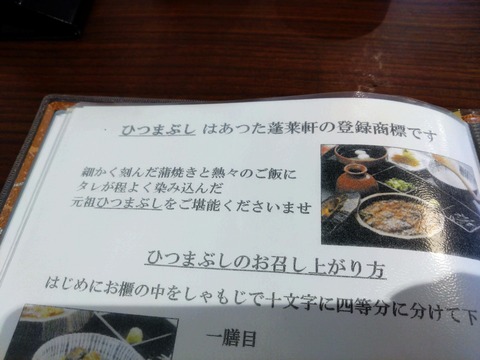 ひつまぶし はあつた蓬莱軒の登録商標です
細かく刻んだ蒲焼きと熱々のご飯に
タレが程よく染み込んだ
元祖ひつまぶしをご堪能くださいませ
ひつまぶしのお召し上がり方
はじめにお櫃の中をしゃもじで十文字に四等分に分けて下
一膳目